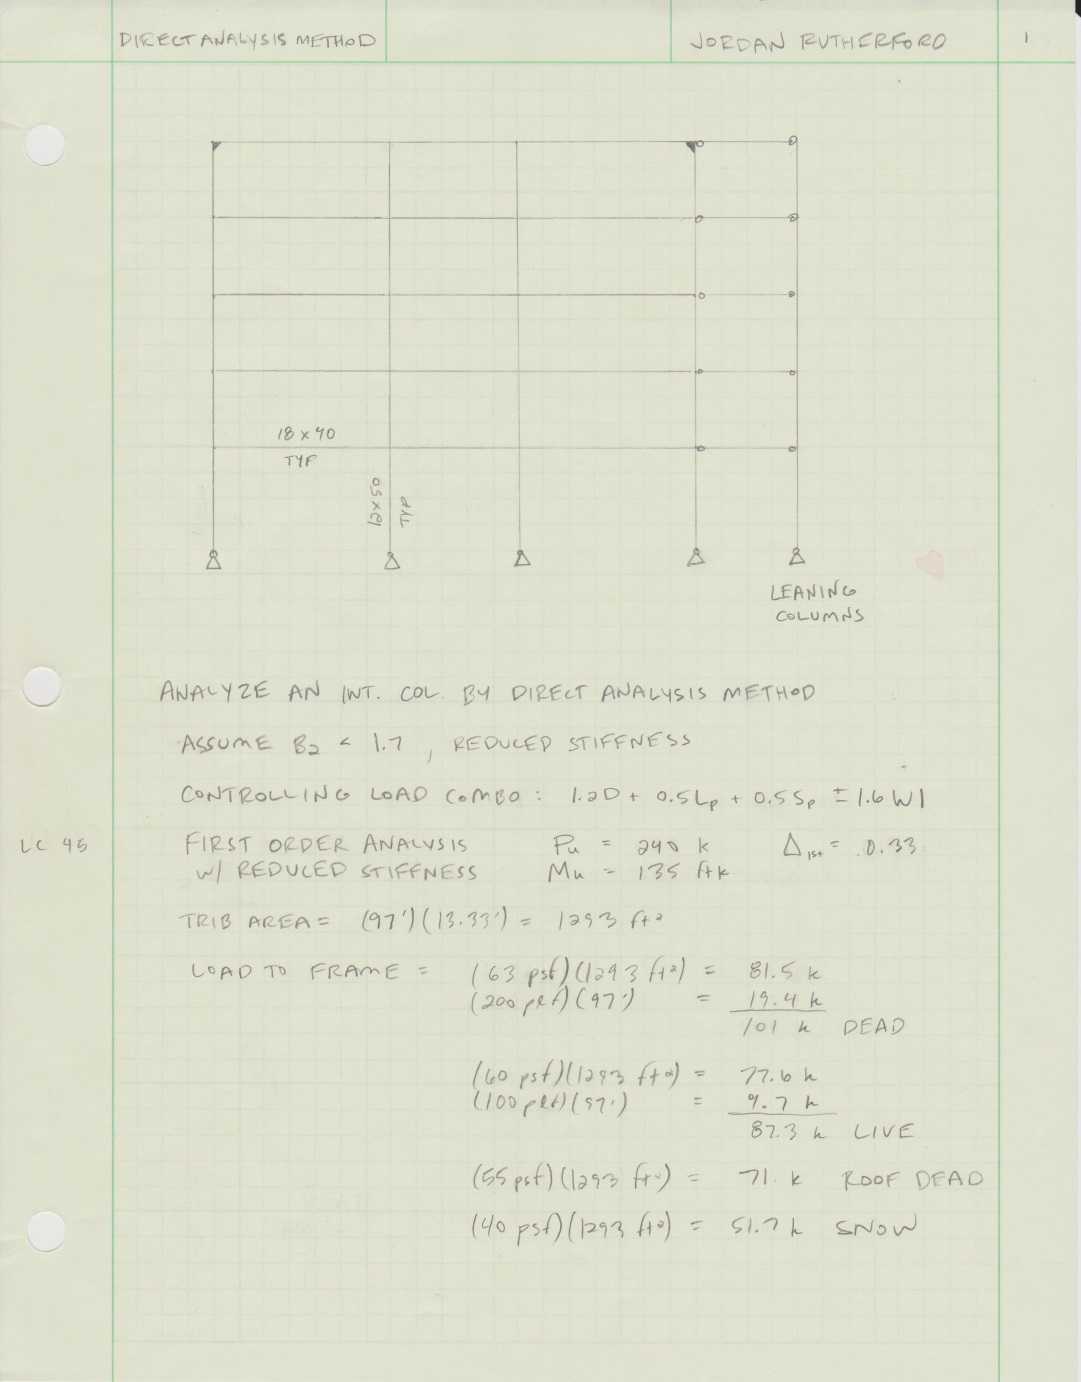 DIRECT ANALYSIS METHOD JORDAN RUTHERFORD 1
18 x 40
TYP
12 x 50
TYP
LEANING
COLUMNS
ANALYZE AN INT. COL. BY DIRECT ANALYSIS METHOD
ASSUME B2 < 1.7 , REDUCED STIFFNESS
CONTROLLING LOAD COMBO : 1.2D + 0.5Lp + 0.5Sp ± 1.6W1
LC 45 FIRST ORDER ANALYSIS Pu = 240 k Δ1st = 0.33
W/ REDUCED STIFFNESS Mu = 135 ftk
TRIB AREA = (97')(13.33') = 1293 ft²
LOAD TO FRAME = (63 psf)(1293 ft²) = 81.5 k
(200 plf)(97') = 19.4 k
101 k DEAD
(60 psf)(1293 ft²) = 77.6 k
(100 plf)(97') = 9.7 k
87.3 k LIVE
(55 psf)(1293 ft²) = 71 k ROOF DEAD
(40 psf)(1293 ft²) = 51.7 k SNOW